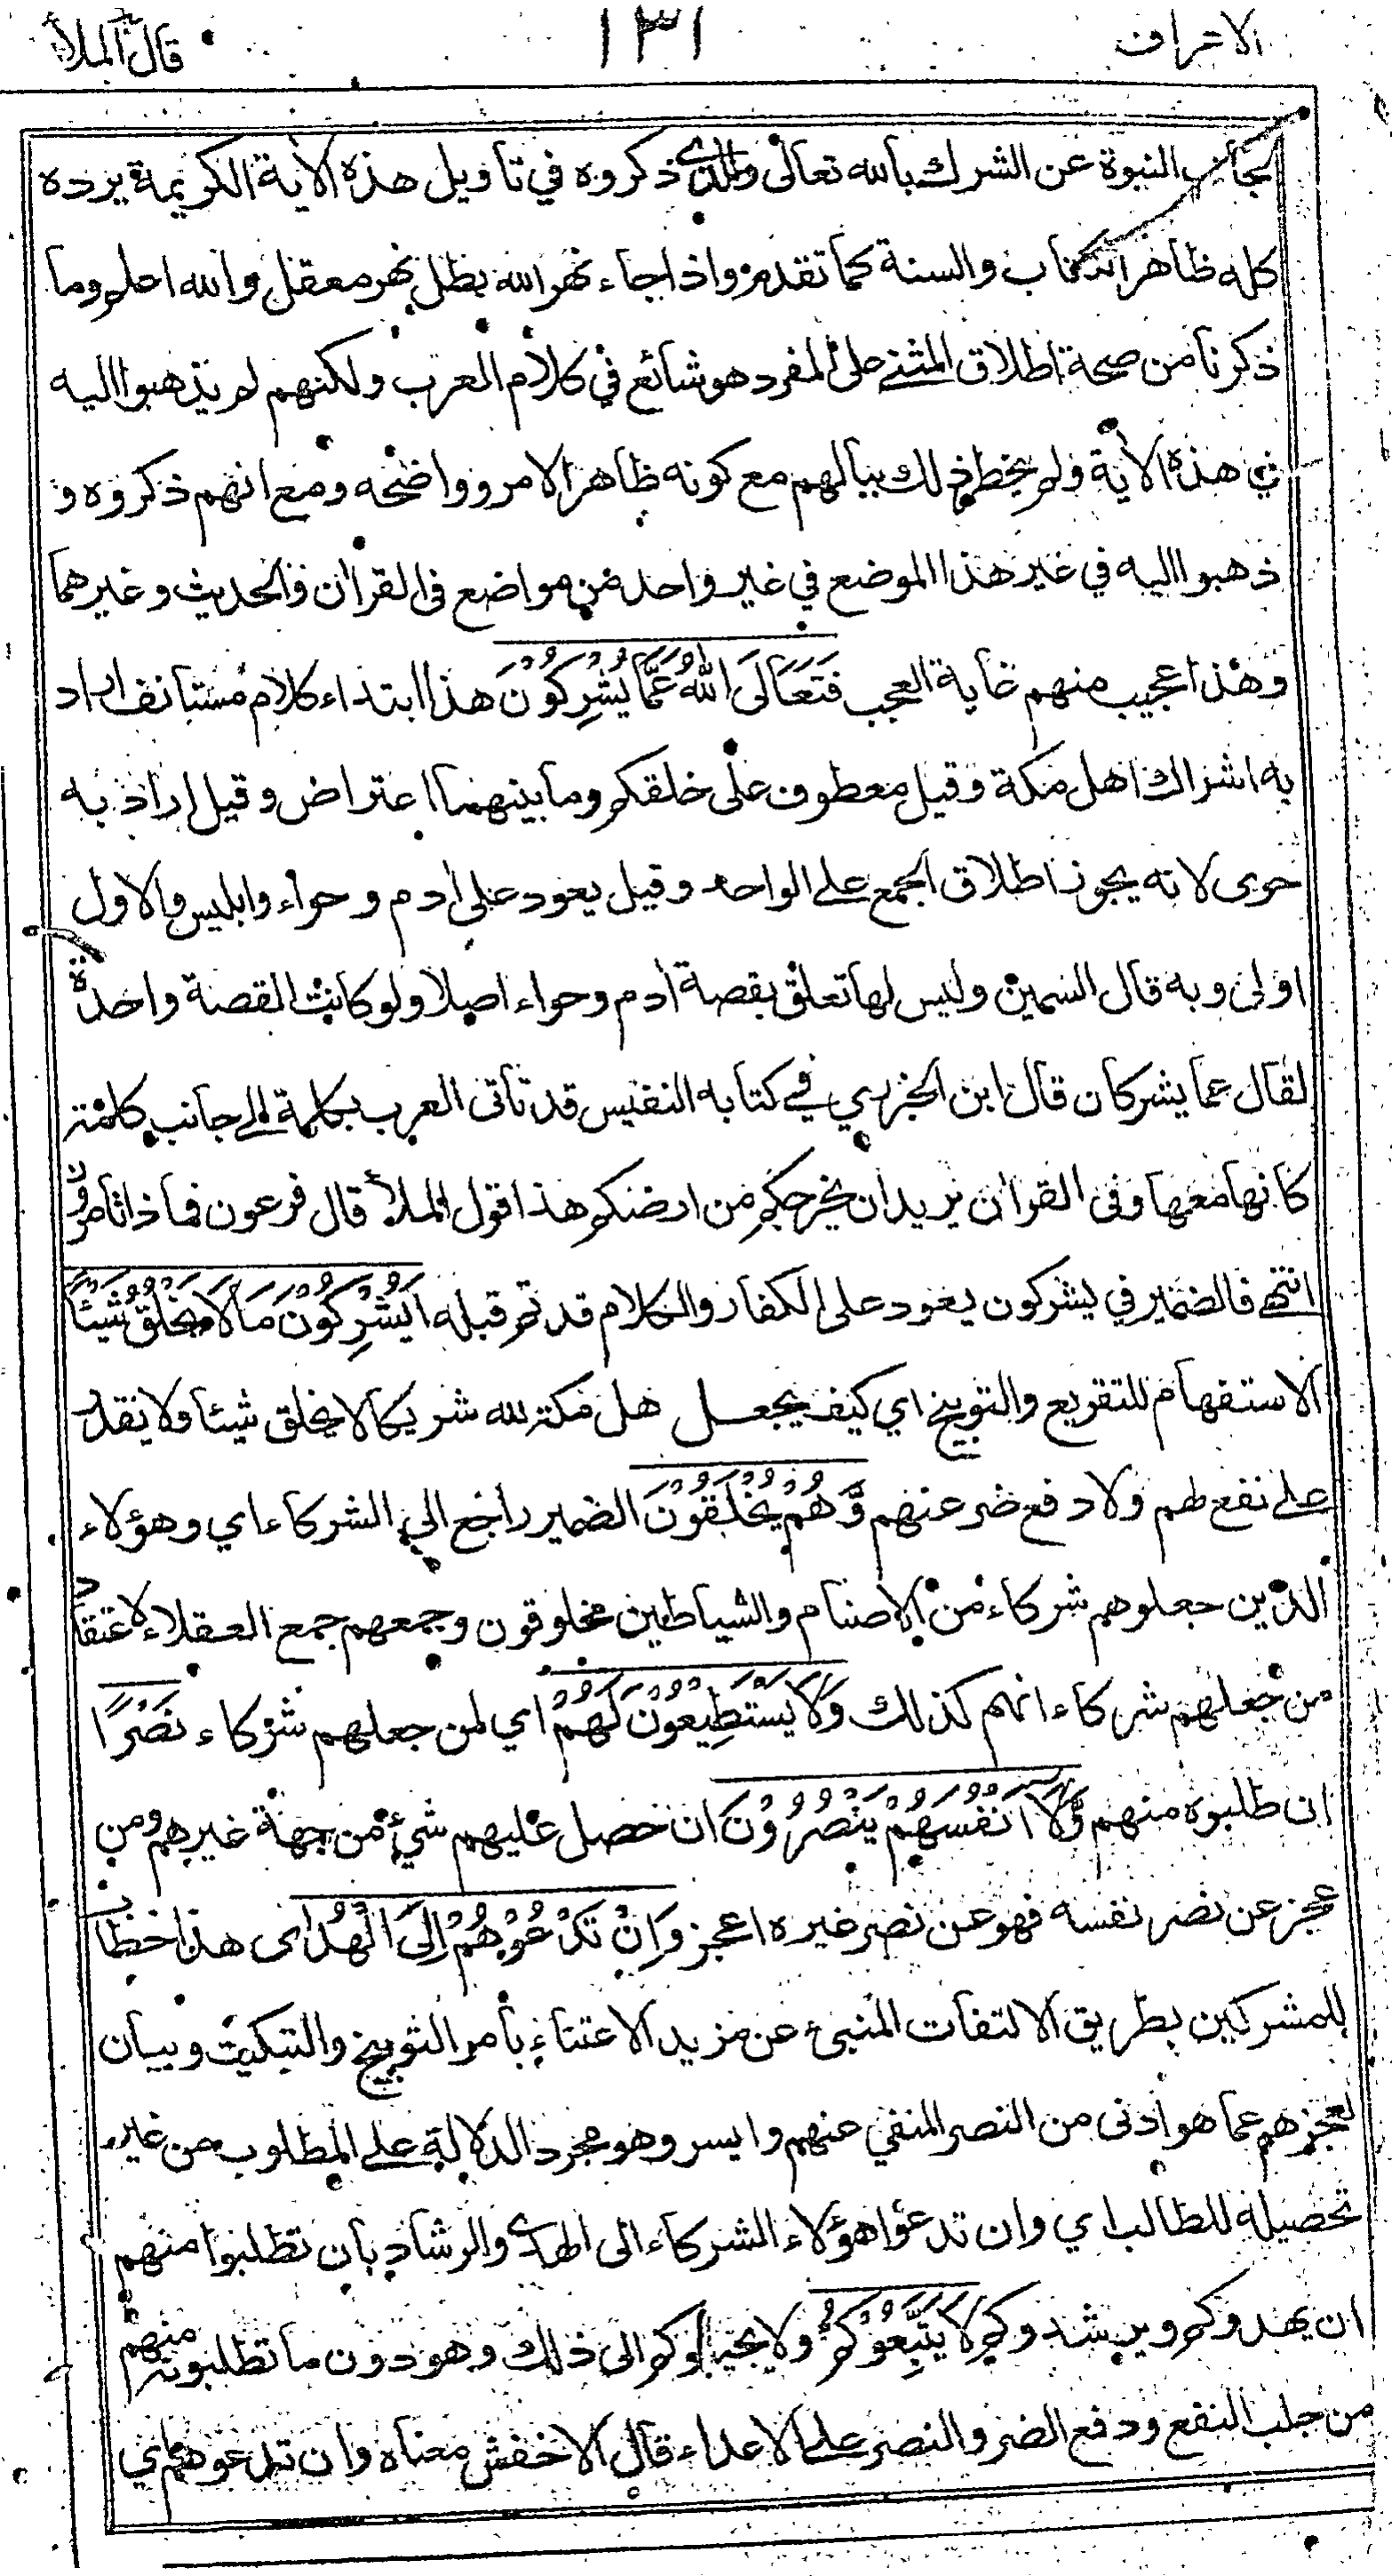 الاعراف ١٣١ قال الملأ
بجانب النبوة عن الشرك بالله تعالى والذي ذكروه في تأويل هذه الاٰية الكريمة يرده
كله ظاهر الكتاب والسنة كما تقدم واذا جاء نهر الله بطل نهر معقل والله اعلم وما
ذكرنا من صحة اطلاق المثنى على المفرد هو شائع في كلام العرب ولكنهم لم يذهبوا اليه
في هذه الاٰية ولم يخطر ذلك ببالهم مع كونه ظاهر الامر وواضحه ومع انهم ذكروه و
ذهبوا اليه في غير هذا الموضع في غير واحد من مواضع في القراٰن والحديث وغيرهما
وهذا عجيب منهم غاية العجب فَتَعَالَى اللّٰهُ عَمَّا يُشْرِكُوْنَ هذا ابتداء كلام مستانف اراد
به اشراك اهل مكة وقيل معطوف على خلقكم وما بينهما اعتراض وقيل اراد به
حوى لانه يجوز اطلاق الجمع على الواحد وقيل يعود على اٰدم وحواء وابليس والاول
اولى وبه قال السمين وليس لها تعلق بقصة اٰدم وحواء اصلا ولو كانت القصة واحدة
لقال عما يشركان قال ابن الجزري في كتابه النفيس قد تأتى العرب بكلمة الى جانب كلمة
كانها معها وفى القراٰن يريد ان يخرجكم من ارضكم هذا قول الملأ قال فرعون فما ذا تأمرون
انتهى فالضمير في يشركون يعود على الكفار والكلام قد تم قبله اَيُشْرِكُوْنَ مَا لَا يَخْلُقُ شَيْئًا
الاستفهام للتقريع والتوبيخ اي كيف يجعل اهل مكة لله شريكا لا يخلق شيئا ولا يقدر
على نفع لهم ولا دفع ضر عنهم وَّهُمْ يُخْلَقُوْنَ الضمير راجع الى الشركاء اي وهؤلاء
الذين جعلوهم شركاء من الاصنام والشياطين مخلوقون وجمعهم جمع العقلاء لاعتقاد
من جعلهم شركاء انهم كذلك وَلَا يَسْتَطِيْعُوْنَ لَهُمْ اي لمن جعلهم شركاء نَصْرًا
ان طلبوه منهم وَّلَآ اَنْفُسَهُمْ يَنْصُرُوْنَ ان حصل عليهم شيء من جهة غيرهم ومن
عجز عن نصر نفسه فهو عن نصر غيره اعجز وَاِنْ تَدْعُوْهُمْ اِلَى الْهُدٰى هذا خطاب
للمشركين بطريق الالتفات المنبئ عن مزيد الاعتناء بأمر التوبيخ والتبكيت وبيان
لعجزهم عما هو ادنى من النصر المنفي عنهم وايسر وهو مجرد الدلالة على المطلوب من غير
تحصيله للطالب اي وان تدعوا هؤلاء الشركاء الى الهدى والرشاد بان تطلبوا منهم
ان يهدوكم ويرشدوكم لَا يَتَّبِعُوْكُمْ ولا يجيبوكم الى ذلك وهو دون ما تطلبونه منهم
من جلب النفع ودفع الضر والنصر على الاعداء قال الاخفش معناه وان تدعوهم اي